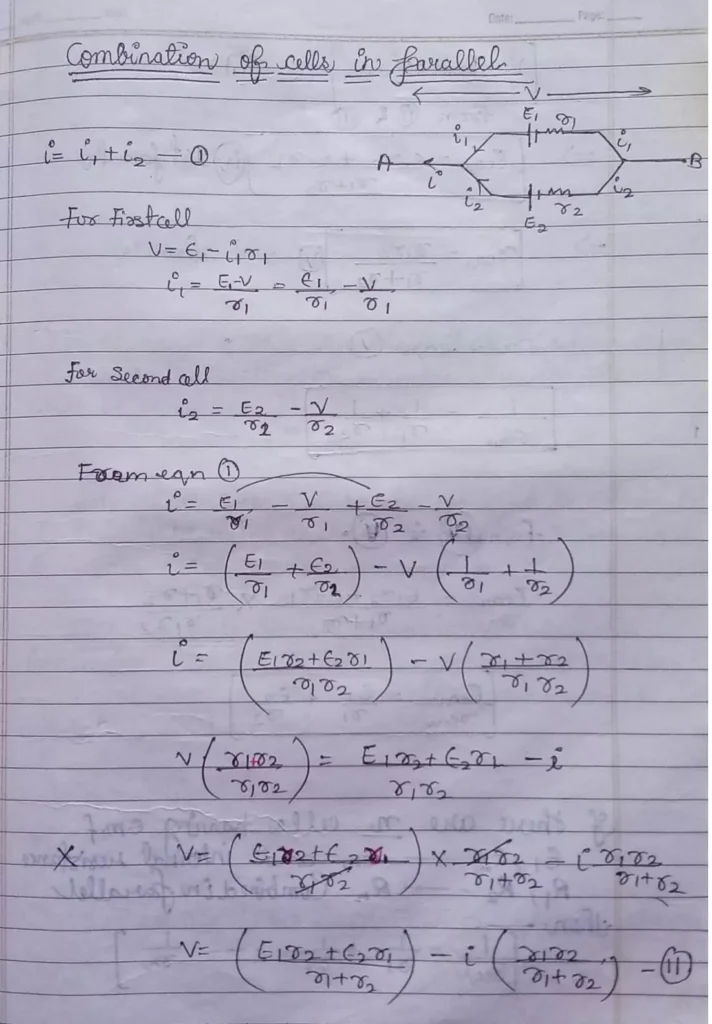 Date: Page:
Combination of cells in parallel
V
E₁ r₁
i₁ i₁
i = i₁ + i₂ — ①
A B
i
i₂ r₂ i₂
E₂
For First cell
V = E₁ - i₁r₁
i₁ = E₁-V/r₁ = E₁/r₁ - V/r₁
For Second cell
i₂ = E₂/r₂ - V/r₂
From eqn ①
i = E₁/r₁ - V/r₁ + E₂/r₂ - V/r₂
i = (E₁/r₁ + E₂/r₂) - V (1/r₁ + 1/r₂)
i = (E₁r₂+E₂r₁/r₁r₂) - V(r₁+r₂/r₁r₂)
V(r₁+r₂/r₁r₂) = E₁r₂+E₂r₁/r₁r₂ - i
X V= (E₁r₂+E₂r₁/r₁r₂) X r₁r₂/r₁+r₂ - i r₁r₂/r₁+r₂
V= (E₁r₂+E₂r₁/r₁+r₂) - i (r₁r₂/r₁+r₂) - ⑪